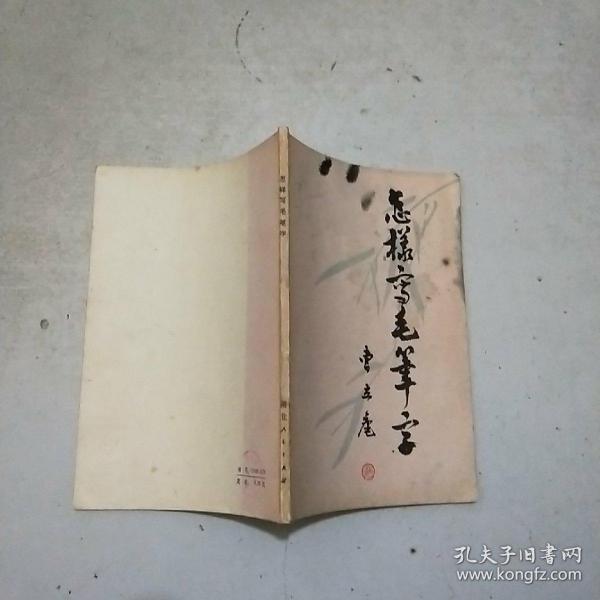 怎樣寫毛筆字
曹立庵
怎样写毛笔字
湖北人民出版社
孔夫子旧书网
www.kongfz.com